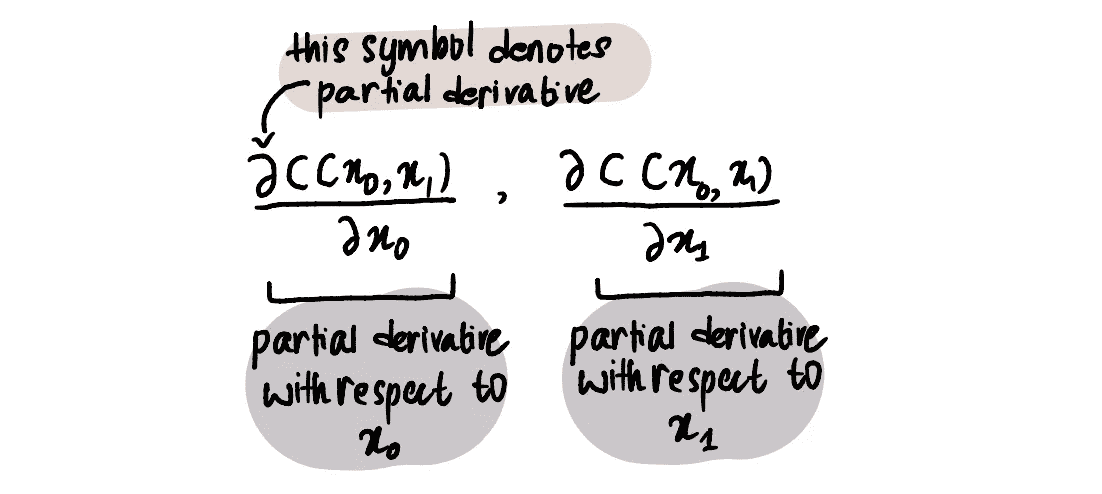 this symbol denotes
partial derivative
∂C(x₀,x₁) , ∂C(x₀,x₁)
∂x₀ ∂x₁
partial derivative
with respect to
x₀
partial derivative
with respect to
x₁